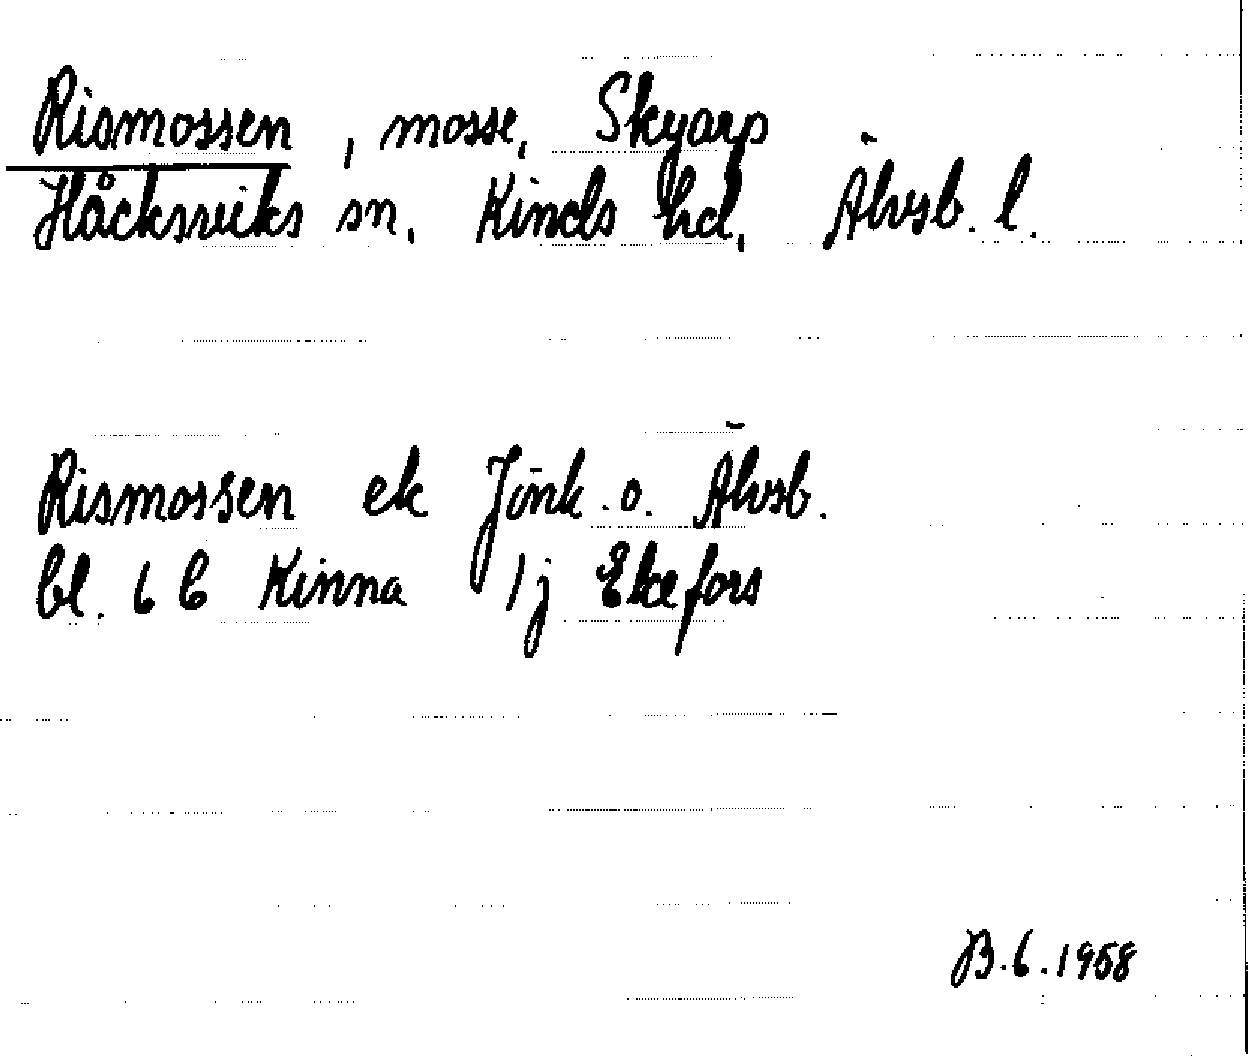 Rismossen, mosse, Skyarp
Håcksviks sn, Kinds hd, Älvsb. l.
Rismossen ek Jönk. o. Älvsb.
bl. 6 C Kinna 1j Ekefors
B.C. 1958